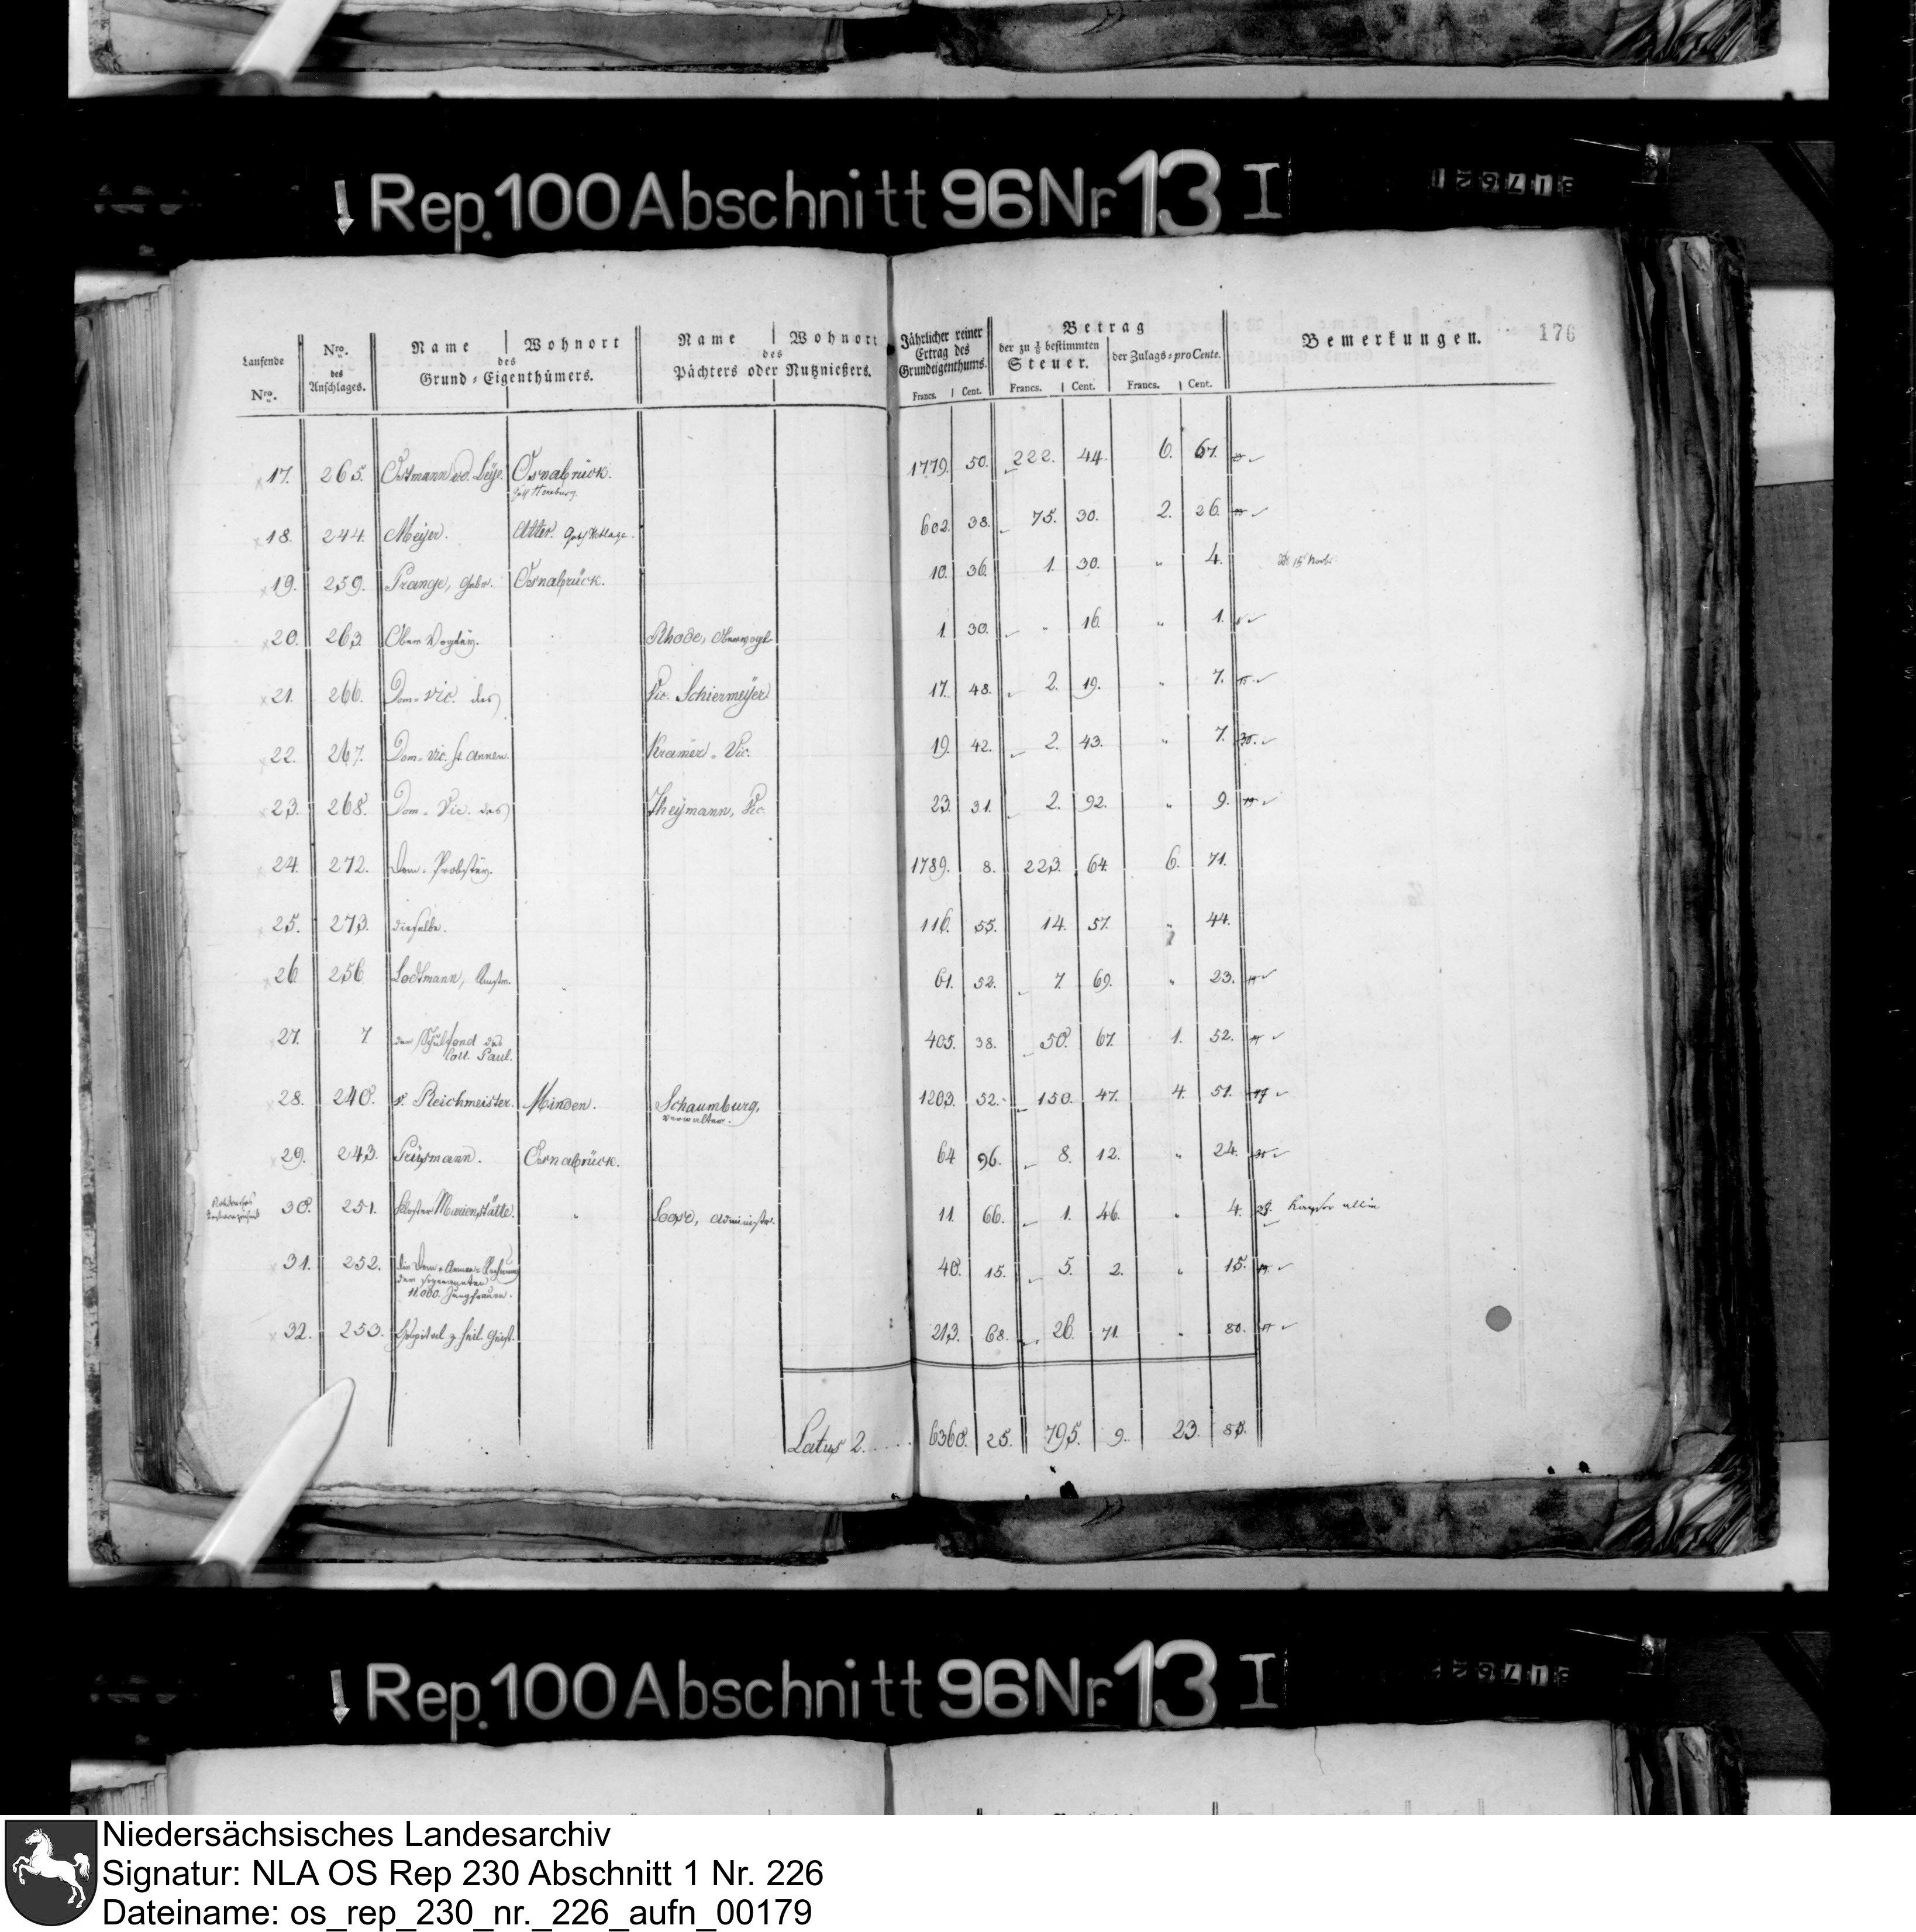 Rep. 100 Abschnitt 96 Nr. 13 I
176
Laufende Nro.
Nro. des Anschlages.
Name | Wohnort
des
Grund-Eigenthümers.
Name | Wohnort
des
Pächters oder Nutznießers.
Jährlicher reiner Ertrag des Grundeigenthums.
Francs. | Cent.
Betrag
der zu 1/8 bestimmten Steuer.
Francs. | Cent.
der Zulags-pro Cente.
Francs. | Cent.
Bemerkungen.
17. 265. Ostmann v. d. Leye. Osnabrück. 1779. 50. 222. 44. 6. 67.
18. 244. Meyer. Atter. 602. 38. 75. 30. 2. 26.
19. 259. Prange, Gebr. Osnabrück. 10. 36. 1. 30. " 4.
20. 263. Ober Vogtey. Rhode, Obervogt 1. 30. " 16. " 1.
21. 266. Dom-Vic. des Vic. Schiermeyer 17. 48. 2. 19. " 7.
22. 267. Dom-Vic. St. Annen. Kramer. Vic. 19. 42. 2. 43. " 7.
23. 268. Dom-Vic. des Theymann, Vic. 23. 31. 2. 92. " 9.
24. 272. Dom-Probstey. 1789. 8. 223. 64. 6. 71.
25. 273. dieselbe. 116. 55. 14. 57. " 44.
26. 256 Lodtmann, 61. 52. 7. 69. " 23.
27. 7 der Schulfond des 405. 38. 50. 67. 1. 52.
Coll. Paul.
28. 240. v. Reichmeister. Minden. Schaumburg, 1203. 52. 150. 47. 4. 51.
Verwalter.
29. 243. Osnabrück. 64 96. 8. 12. " 24.
30. 251. Kloster Marienstätte. " Administr. 11. 66. 1. 46. " 4.
31. 252. die Dom-Armen- 40. 15. 5. 2. " 15.
den sogenannten
11.000. Jungfrauen.
32. 253. Hospital z. heil. Geist. 213. 68. 26. 71. " 80.
Latus 2.... 6360. 25. 795. 9. 23. 85.
Rep. 100 Abschnitt 96 Nr. 13 I
Niedersächsisches Landesarchiv
Signatur: NLA OS Rep 230 Abschnitt 1 Nr. 226
Dateiname: os_rep_230_nr._226_aufn_00179